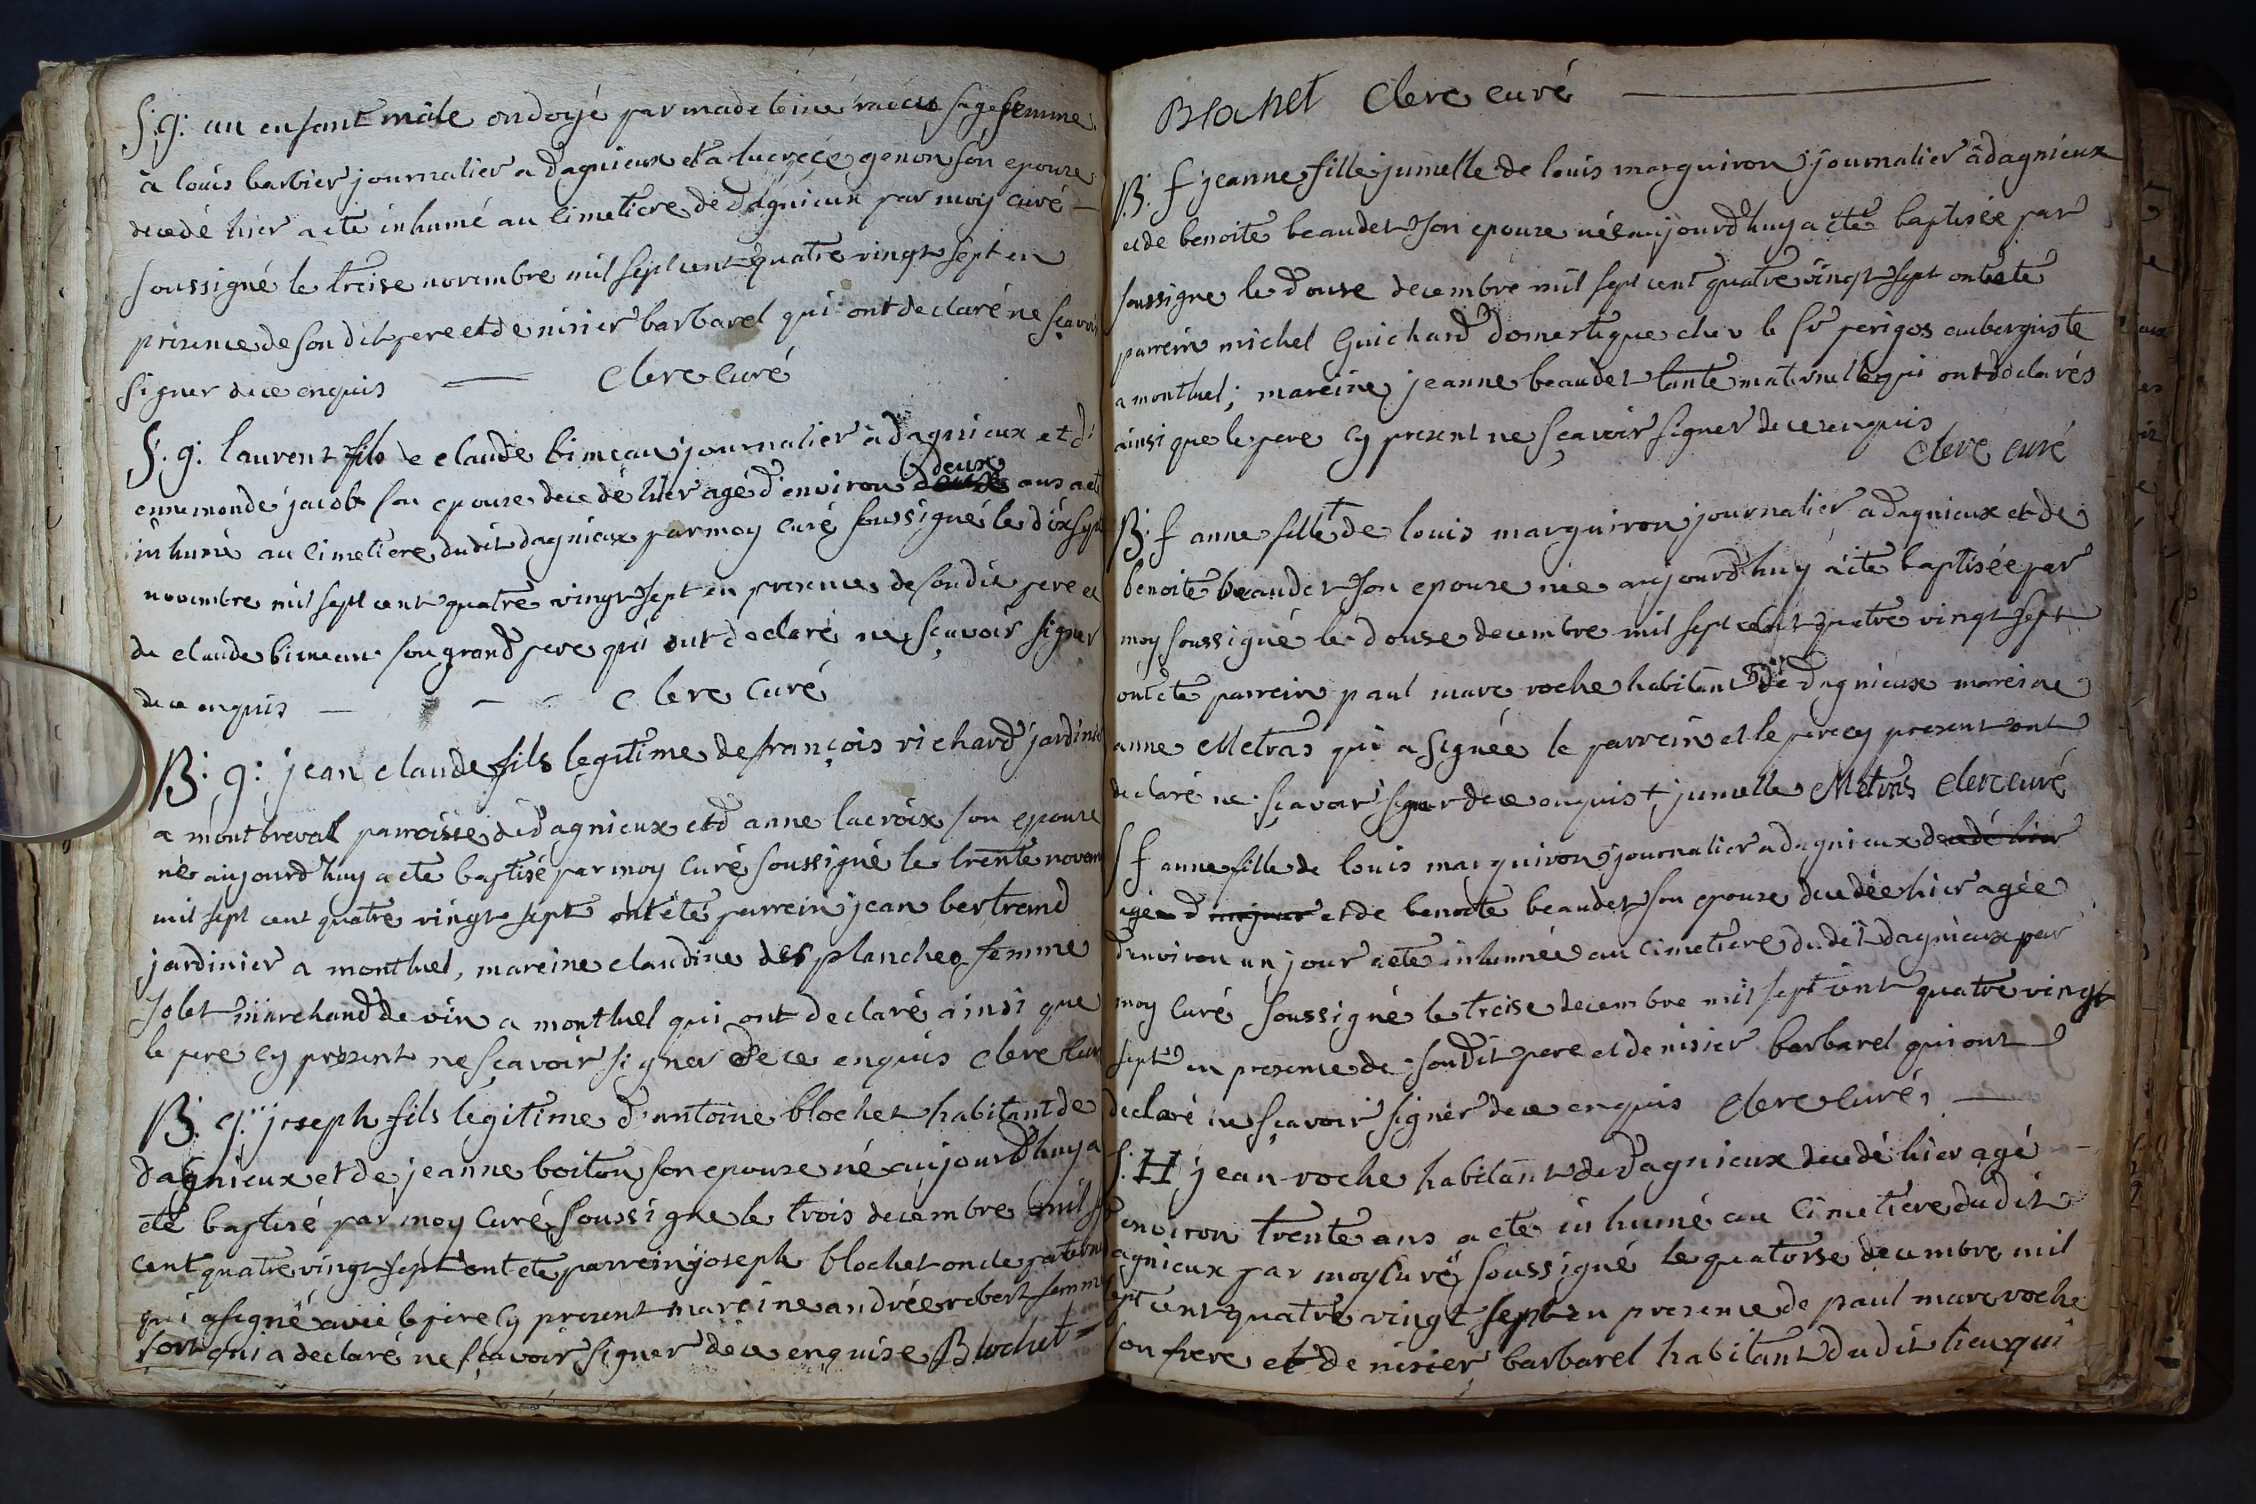 S: g: un enfant mâle ondoyé par madeleine sage femme
à louis barbier journalier a dagnieux et a lucrece genon son epouze
decedé hier a ete inhumé au cimetiere de dagnieux par moy curé —
soussigné le treise novembre mil sept cent quatre vingt sept en
présence de son dit pere et de nisier barbarel qui ont declaré ne sçavoir
signer de ce enquis — Clerc Curé
S: g: laurent fils de claude bimeau journalier à dagnieux et d'
ennemonde jacob son epouze decedé hier agé d'environ deux ans a eté
inhumé au cimetiere dudit dagnieux par moy curé soussigné le dix sept
novembre mil sept cent quatre vingt sept en presence de son dit pere et
de claude bimeau son grand pere qui ont declaré ne sçavoir signer
de ce enquis — — — Clerc Curé
B: g: jean claude fils legitime de françois richard jardinier
a montbreval parroisse de dagnieux et d'anne lacroix son epouze
né aujourd'huy a ete baptisé par moy Curé soussigné le trente novem
mil sept cent quatre vingt sept ont été parrein jean bertrand
jardinier a montluel, mareine claudine des planches femme
Jolet marchand de vin a montluel qui ont declaré ainsi que
le pere cy present ne sçavoir signer de ce enquis Clerc Cur
B: g: joseph fils legitime d'antoine blochet habitant de
dagnieux et de jeanne boiton son epouze né aujourd'huy a
été baptisé par moy Curé soussigne le trois decembre mil s
cent quatre vingt sept ont ete parrein joseph blochet oncle patern
qui a signé avec le pere cy present mareine andrée robert femme
fort qui a declaré ne sçavoir signer de ce enquise Blochet
Blochet Clerc curé —
B: f jeanne fille jumelle de louis marguiron journalier à dagnieux
et de benoite beaudet son epouze née aujourd'huy a été baptisée par
soussigne le douse decembre mil sept cent quatre vingt sept ont ete
parrein michel Guichard domestique chez le sr perigos aubergiste
a montluel; mareine jeanne beaudet tante maternelle qui ont declarés
ainsi que le pere cy present ne sçavoir signer de ce enquis
Clerc curé
B: f anne fille † de louis marguiron journalier a dagnieux et de
benoite beaudet son epouze née aujourd'huy a ete baptisée par
moy soussigné le douse decembre mil sept cent quatre vingt sept
ont ete parrein paul marc roche habitant de dagnieux mareine
anne Metras qui a signée le parrein et le pere cy present ont
declaré ne sçavoir signer de ce enquis † jumelle Metras Clerc curé
S f anne fille de louis marguiron journalier a dagnieux decedé hier
agée d et de benoite beaudet son epouze decedée hier agée
d'environ un jour a ete inhumée au cimetiere du dit dagnieux par
moy Curé soussigné le treise decembre mil sept cent quatre vingt
sept en presence de son dit pere et de nisier barbarel qui ont
declaré ne sçavoir signer de ce enquis Clerc Curé, —
S: H jean roche habitant de dagnieux decedé hier agé —
d'environ trente ans a ete inhumé au cimetiere dudit
agnieux par moy Curé soussigné le quatorse decembre mil
sept cent quatre vingt sept en presence de paul marc roche
son frere et de nisier barbarel habitant dudit lieu qui